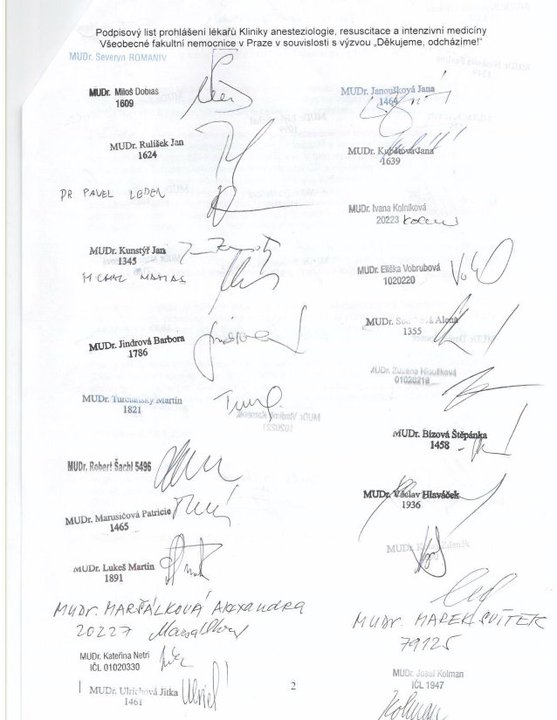 Podpisový list prohlášení lékařů Kliniky anesteziologie, resuscitace a intenzivní medicíny
Všeobecné fakultní nemocnice v Praze v souvislosti s výzvou „Děkujeme, odcházíme!“
MUDr. Severyn ROMANIV
MUDr. Miloš Dobiáš
1609
MUDr. Rulíšek Jan
1624
DR PAVEL LEDEN
MUDr. Kunstýř Jan
1345
MICHAL MATIAS
MUDr. Jindrová Barbora
1786
MUDr. Martin
1821
MUDr. Robert Šachl 5496
MUDr. Marusičová Patricie
1465
MUDr. Lukeš Martin
1891
MUDr. MARŠÁLKOVÁ ALEXANDRA
20227
MUDr. Kateřina Netri
IČL 01020330
MUDr. Ulrichová Jitka
1461
MUDr. Janoušková Jana
146
MUDr. Jana
1639
MUDr. Ivana Kolníková
20223
MUDr. Eliška Vobrubová
1020220
MUDr. Alena
1355
MUDr. Zuzana
01020218
MUDr. Bízová Štěpánka
1458
MUDr. Václav Hlaváček
1936
MUDr.
MUDr. MAREK SVÍTEK
79125
MUDr. Josef Kolman
IČL 1947
Kolman
2